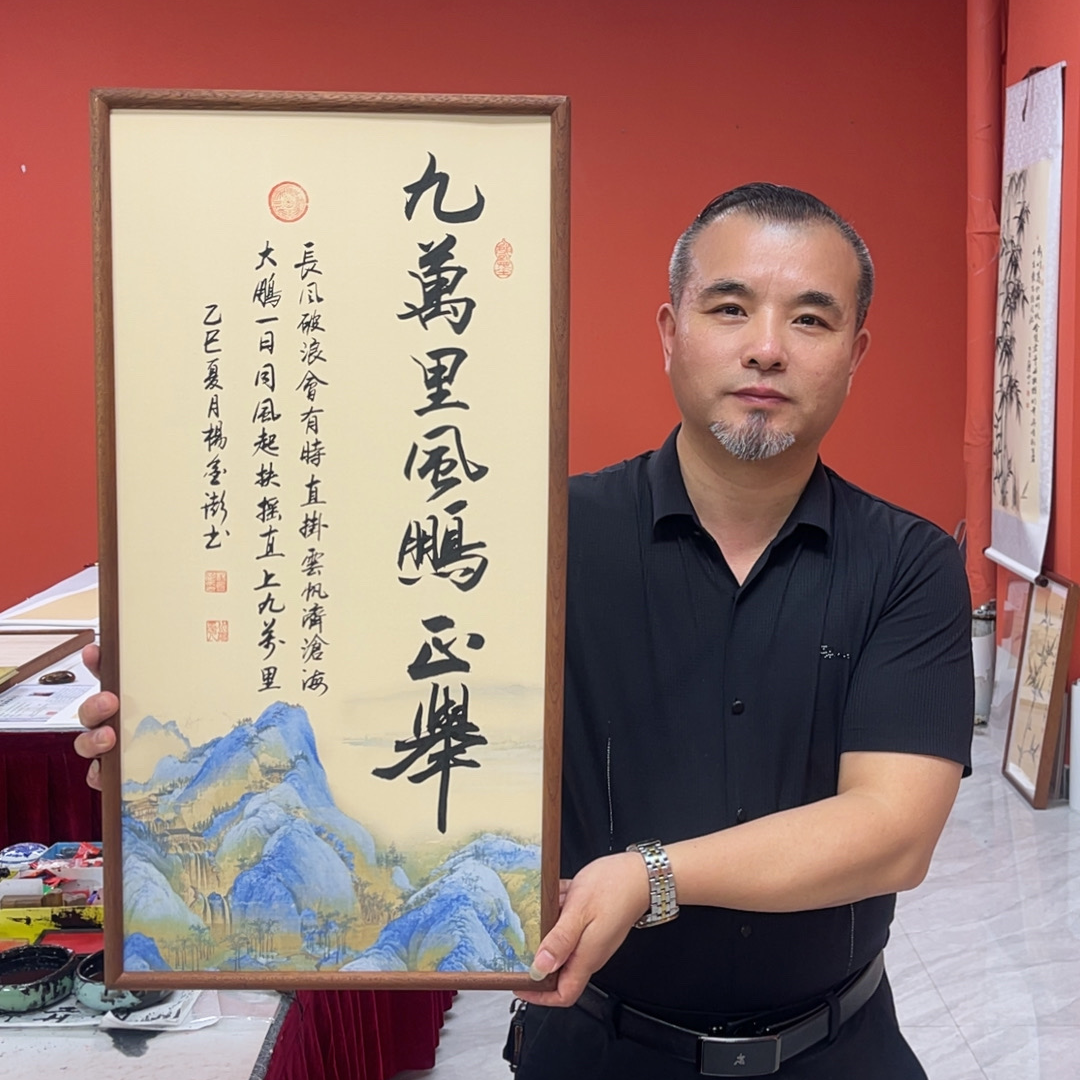 九萬里風鵬正舉
長風破浪會有時直掛雲帆濟滄海
大鵬一日同風起扶搖直上九萬里
乙巳夏月楊金书